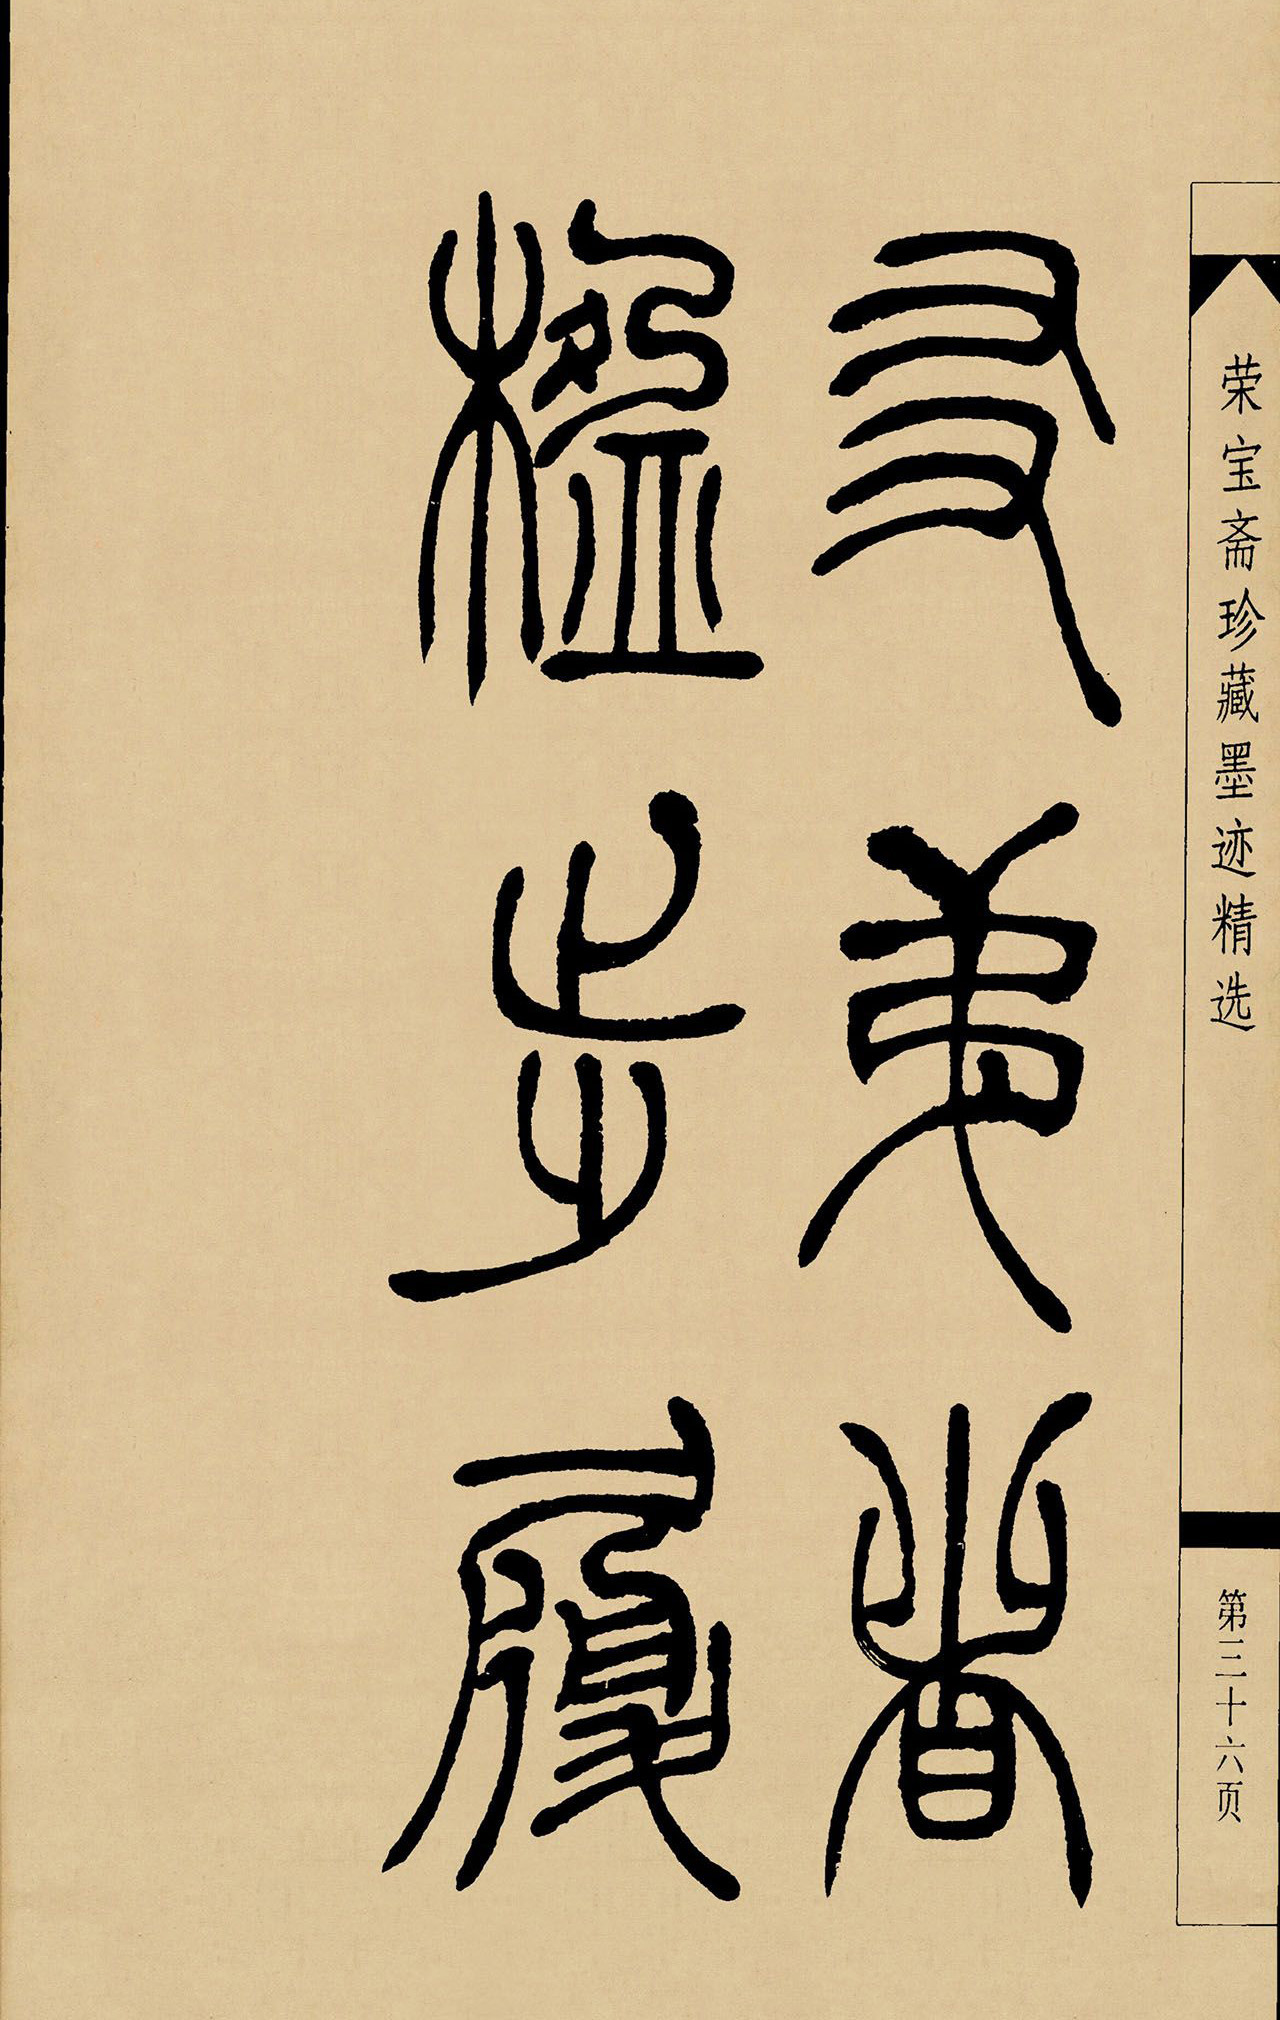 荣宝斋珍藏墨迹精选
第三十六页
友弟
楹步履